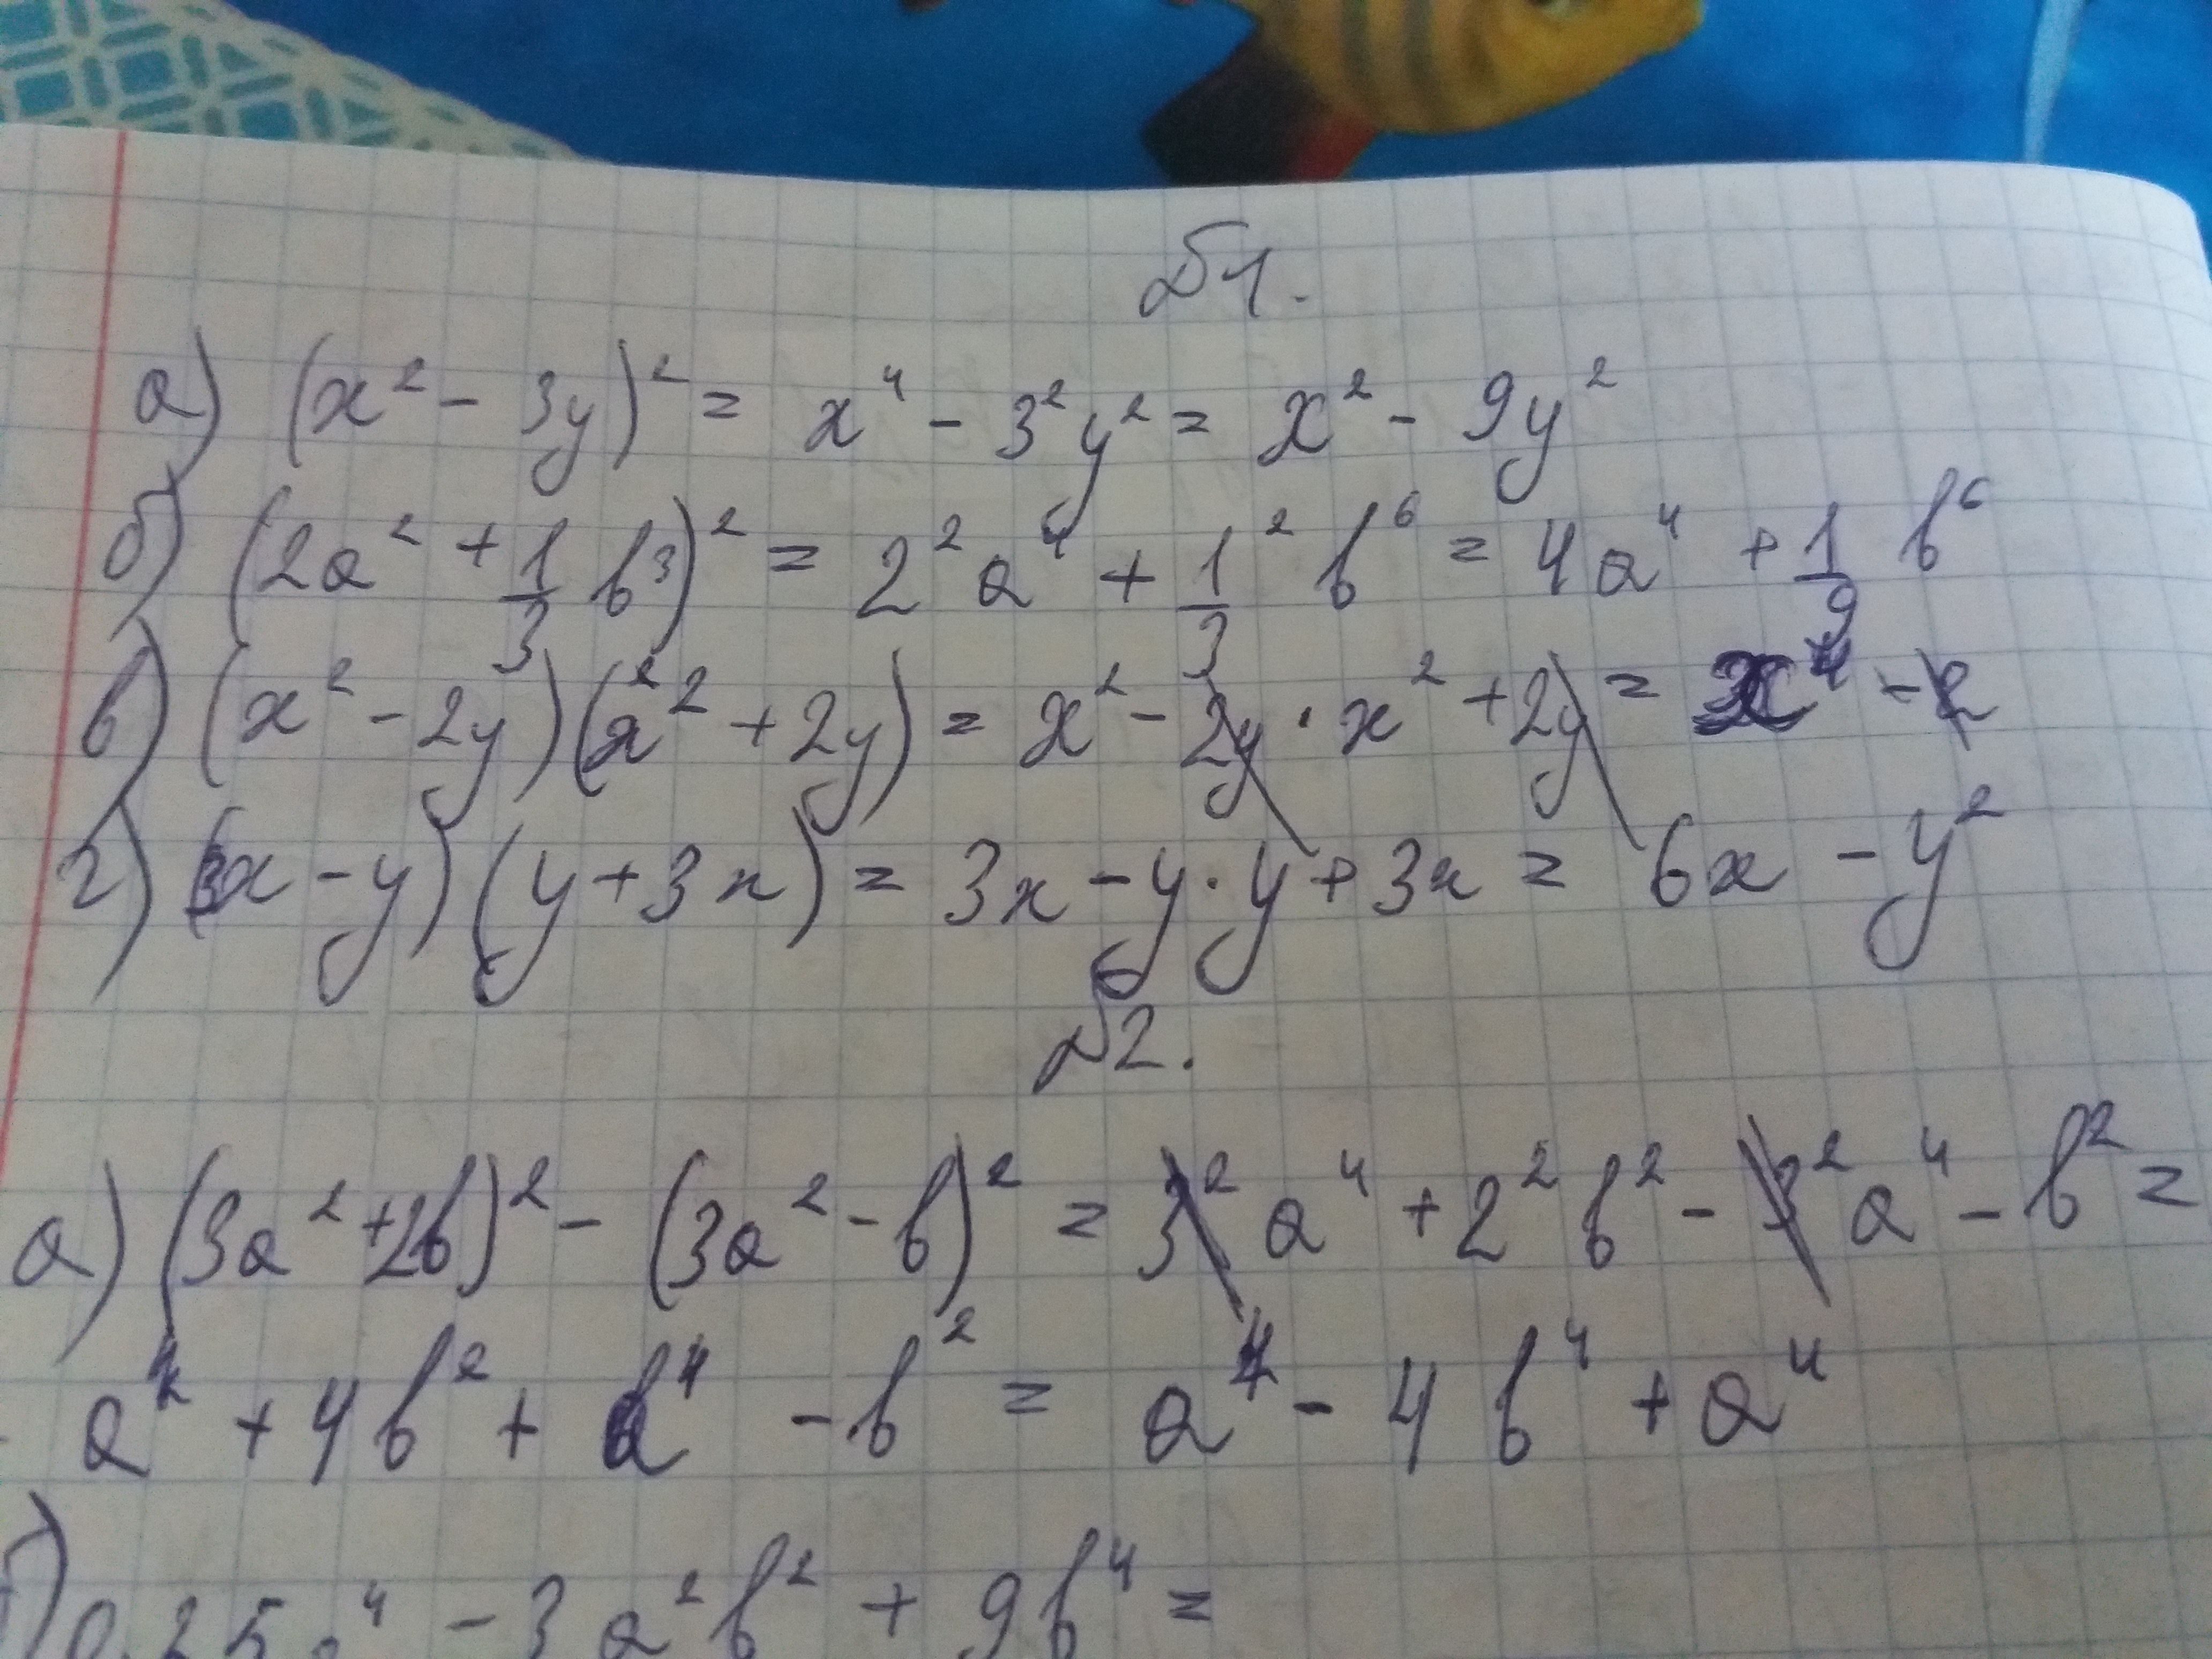 №1.
а) (x² - 3y)² = x⁴ - 3²y² = x² - 9y²
б) (2a² + 1/3 b³)² = 2²a⁴ + 1²/3 b⁶ = 4a⁴ + 1/9 b⁶
в) (x² - 2y)(x² + 2y) = x² - 2y · x² + 2y = x⁴
г) (3x - y)(y + 3x) = 3x - y · y + 3x = 6x - y²
№2.
а) (3a² + 2b)² - (3a² - b)² = 3²a⁴ + 2²b² - 3²a⁴ - b² =
a⁴ + 4b² + a⁴ - b² = a⁴ - 4b⁴ + a⁴
б) 0,25a⁴ - 3a²b² + 9b⁴ =